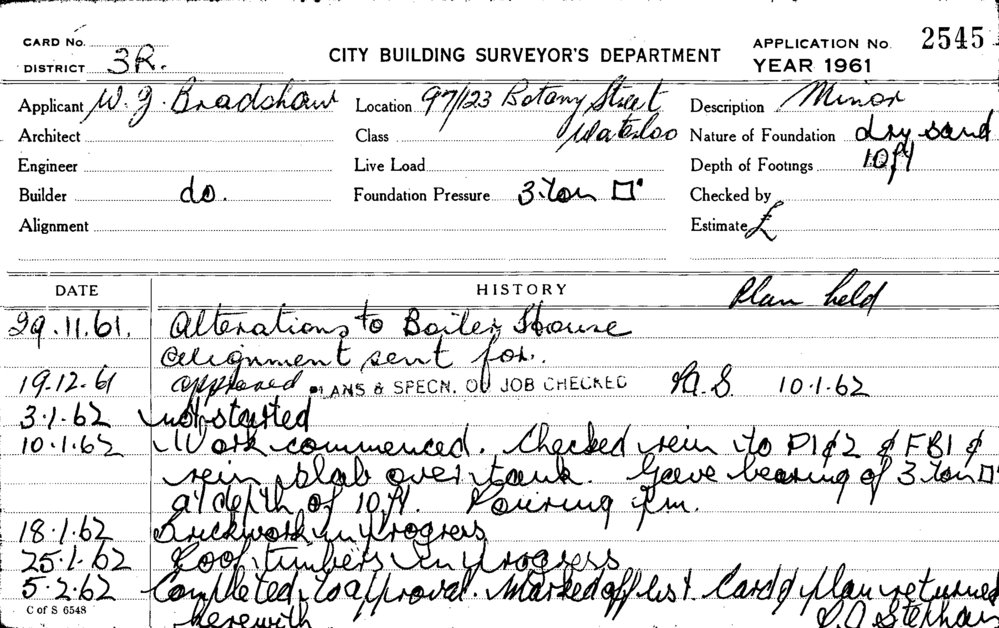 CARD No.
DISTRICT 3R.
CITY BUILDING SURVEYOR'S DEPARTMENT
APPLICATION No. 2545
YEAR 1961
Applicant W. J. Bradshaw Location 97/123 Botany Street Waterloo Description Minor
Architect Class Nature of Foundation dry sand
Engineer Live Load Depth of Footings 10ft
Builder do. Foundation Pressure 3 ton □' Checked by
Alignment Estimate £
DATE HISTORY Plan held
29.11.61. Alterations to Boiler House
alignment sent for.
19.12.61 approved PLANS & SPECN. ON JOB CHECKED 10.1.62
3.1.62 not started
10.1.62 Work commenced. Checked rein to P1&2 & FB1 &
rein slab over tank. Gave bearing of 3 ton □'
at depth of 10ft. Pouring
18.1.62 Brickwork in progress
25.1.62 Roof timbers in progress
5.2.62 Completed to approval. Marked off list. Card & plan returned
herewith
C of S 6548